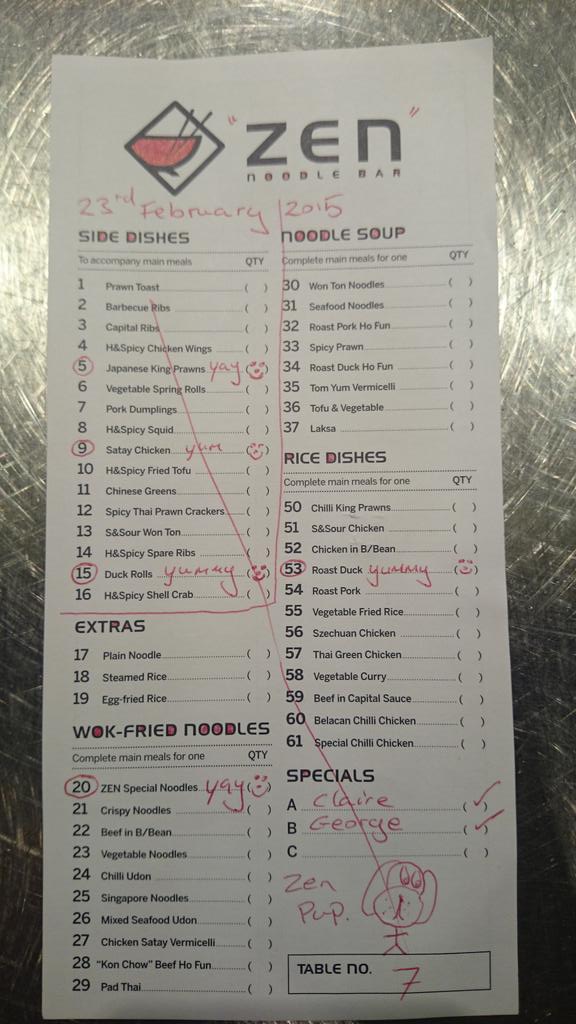 "ZEN"
NOODLE BAR
23rd February 2015
SIDE DISHES
To accompany main meals QTY
1 Prawn Toast ( )
2 Barbecue Ribs ( )
3 Capital Ribs ( )
4 H&Spicy Chicken Wings ( )
5 Japanese King Prawns yay ( )
6 Vegetable Spring Rolls ( )
7 Pork Dumplings ( )
8 H&Spicy Squid ( )
9 Satay Chicken yum ( )
10 H&Spicy Fried Tofu ( )
11 Chinese Greens ( )
12 Spicy Thai Prawn Crackers ( )
13 S&Sour Won Ton ( )
14 H&Spicy Spare Ribs ( )
15 Duck Rolls yummy ( )
16 H&Spicy Shell Crab ( )
EXTRAS
17 Plain Noodle ( )
18 Steamed Rice ( )
19 Egg-fried Rice ( )
WOK-FRIED NOODLES
Complete main meals for one QTY
20 ZEN Special Noodles yay ( )
21 Crispy Noodles ( )
22 Beef in B/Bean ( )
23 Vegetable Noodles ( )
24 Chilli Udon ( )
25 Singapore Noodles ( )
26 Mixed Seafood Udon ( )
27 Chicken Satay Vermicelli ( )
28 "Kon Chow" Beef Ho Fun ( )
29 Pad Thai ( )
NOODLE SOUP
Complete main meals for one QTY
30 Won Ton Noodles ( )
31 Seafood Noodles ( )
32 Roast Pork Ho Fun ( )
33 Spicy Prawn ( )
34 Roast Duck Ho Fun ( )
35 Tom Yum Vermicelli ( )
36 Tofu & Vegetable ( )
37 Laksa ( )
RICE DISHES
Complete main meals for one QTY
50 Chilli King Prawns ( )
51 S&Sour Chicken ( )
52 Chicken in B/Bean ( )
53 Roast Duck yummy ( )
54 Roast Pork ( )
55 Vegetable Fried Rice ( )
56 Szechuan Chicken ( )
57 Thai Green Chicken ( )
58 Vegetable Curry ( )
59 Beef in Capital Sauce ( )
60 Belacan Chilli Chicken ( )
61 Special Chilli Chicken ( )
SPECIALS
A Claire (✓)
B George (✓)
C ( )
Zen
Pup.
TABLE NO. 7